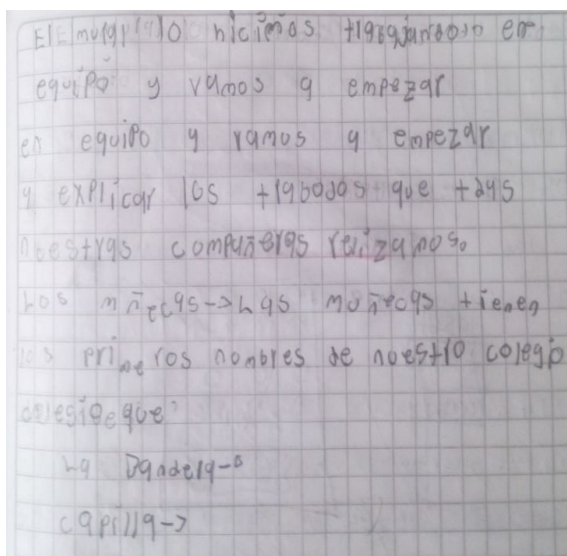 El Mural lo hicimos trabajando en
equipo y vamos a empezar
en equipo y vamos a empezar
y explicar los trabajos que
nuestras compañeras realizamos.
Los muñecas -> Las muñecas tienen
los primeros nombres de nuestro colegio
La Bandera ->
capilla ->